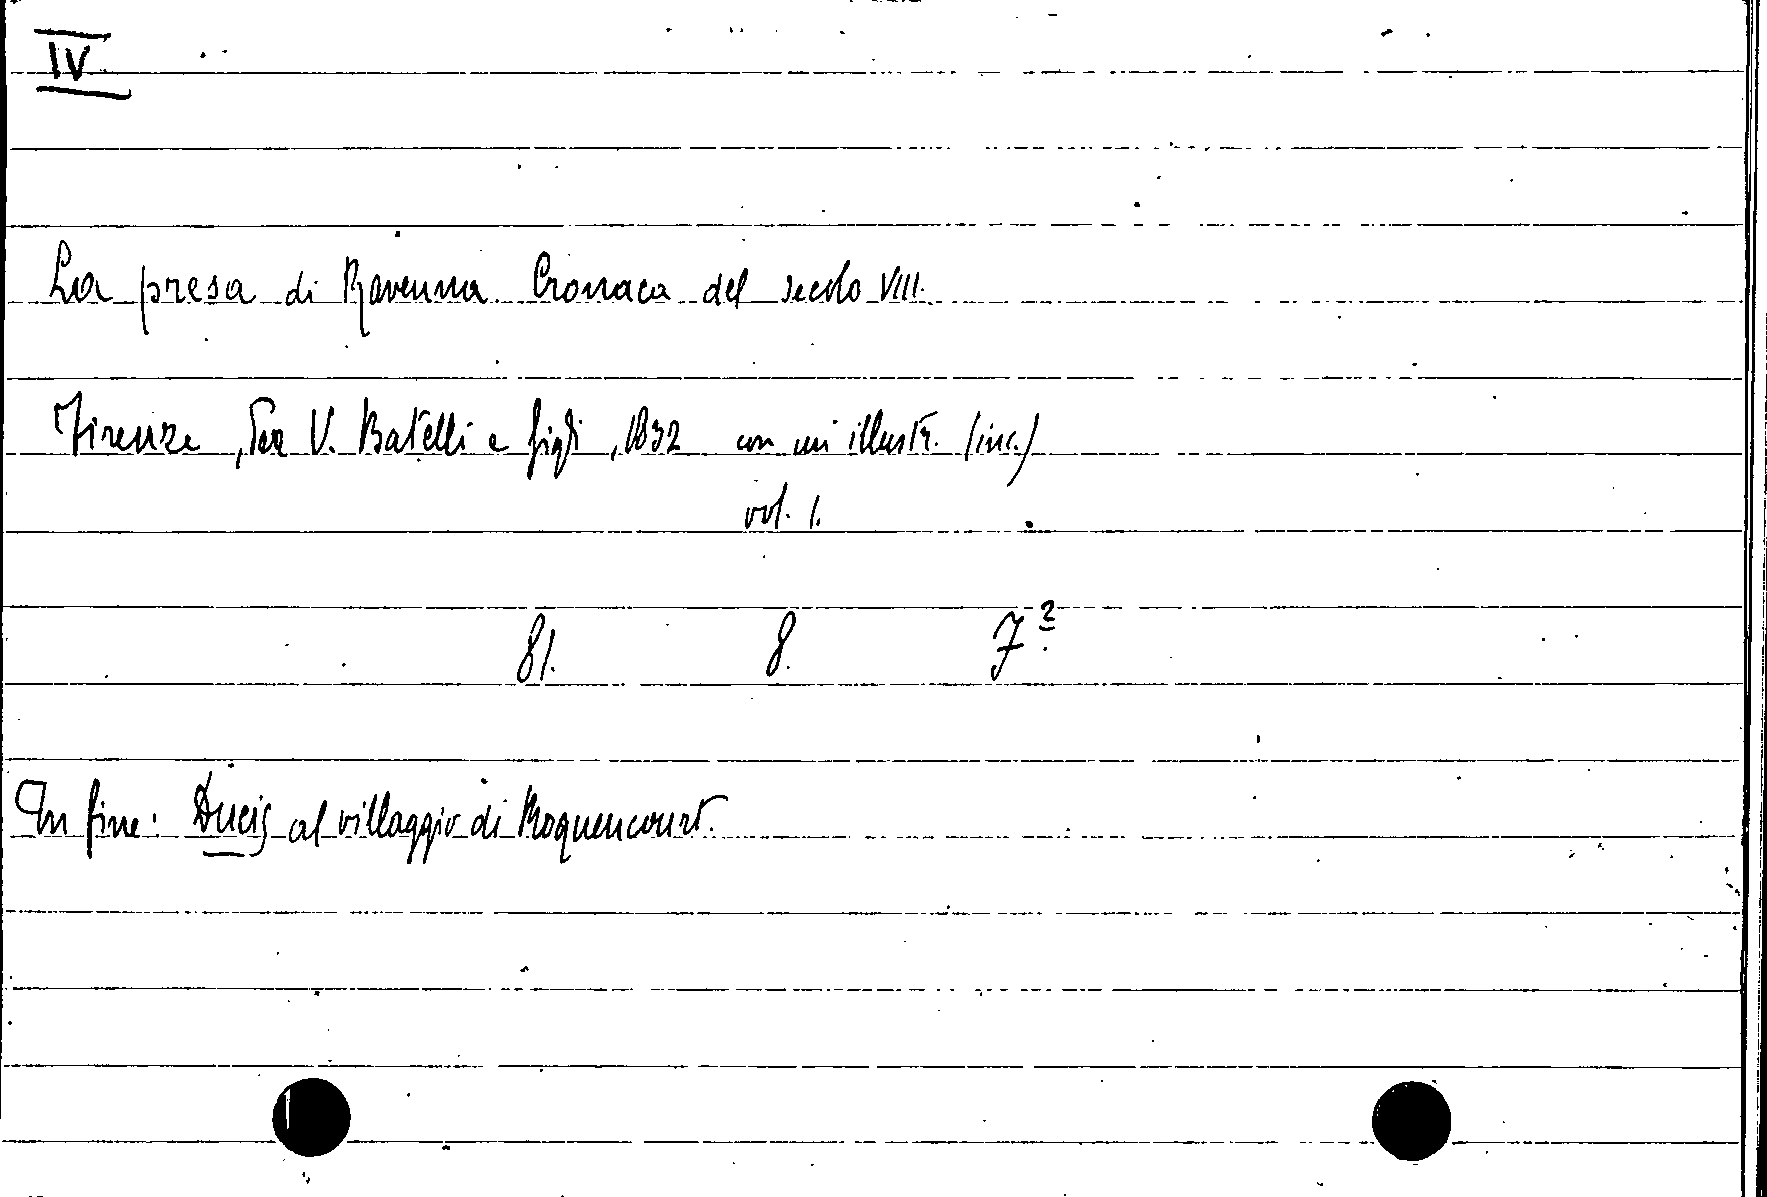 IV
La presa di Ravenna Cronaca del secolo VIII.
Firenze, Per V. Batelli e figli, 1832 con un illustr. (inc.)
vol. 1.
81. 8. 7²
In fine: Ducis al villaggio di Roquencourt.